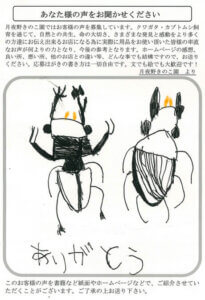 あなた様の声をお聞かせください
月夜野きのこ園ではお客様の声を募集しています。クワガタ・カブトムシ飼
育を通じて、自然との共生、命の大切さ、さまざまな発見と感動をより多く
の方達にお伝え出来るお店になる為に実際に用品をお使い頂いた皆様の率直
なお声が何よりのたより、今後の参考となります。ホームページの感想、
良い所、悪い所、他のお店との違い等、どんな事でも結構ですので、お送り
ください。応募はがきの書き方は一切自由です。文でも絵でも大歓迎です！
月夜野きのこ園 より
ありがとう
このお客様の声を書籍など紙面やホームページなどで、ご紹介させていた
だくことがございます。ご了承の上お送り下さい。